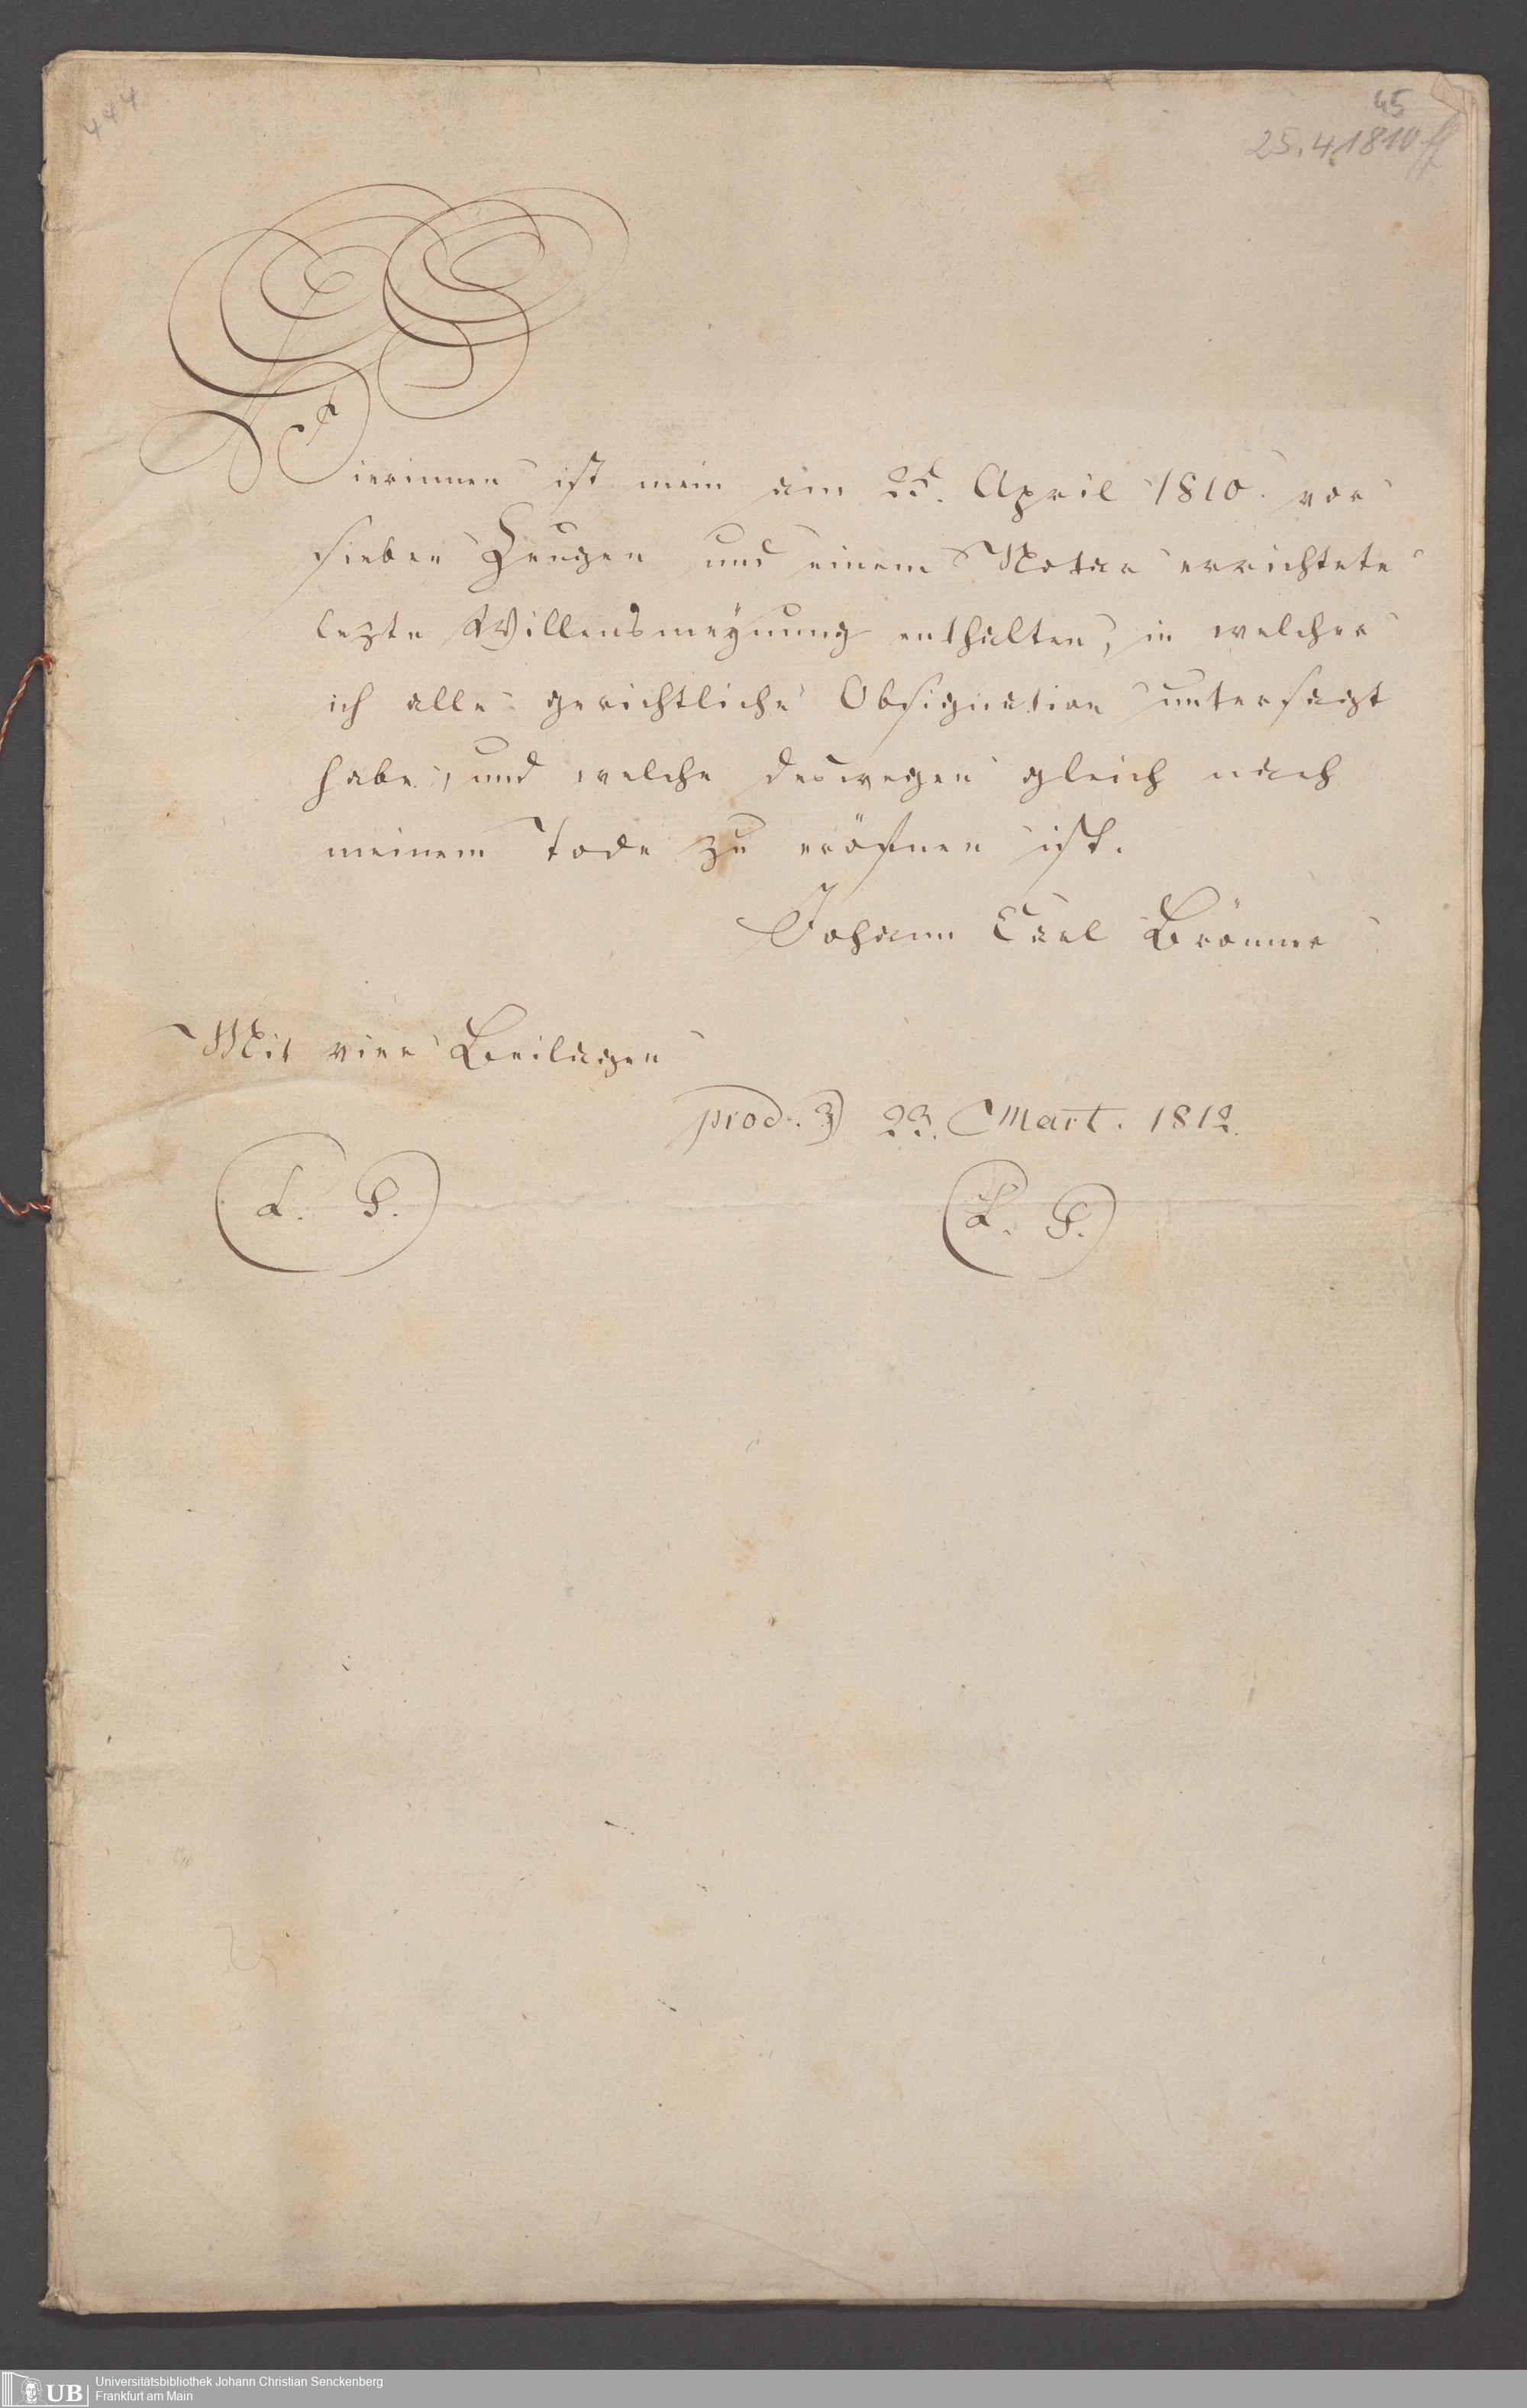 444
45
25.4.1810 ff
Hierinnen ist mein am 25. April 1810. vor
sieben Zeugen und einem Notar errichtete
lezte Willensmeÿnung enthalten, in welcher
ich alle gerichtliche Obsignation untersagt
habe, und welche deswegen gleich nach
meinem Tode zu eröfnen ist.
Johann Carl Brönner
Mit vier Beilagen
prod. 23. Mart. 1812.
L. S.
L. S.
UB
Universitätsbibliothek Johann Christian Senckenberg
Frankfurt am Main